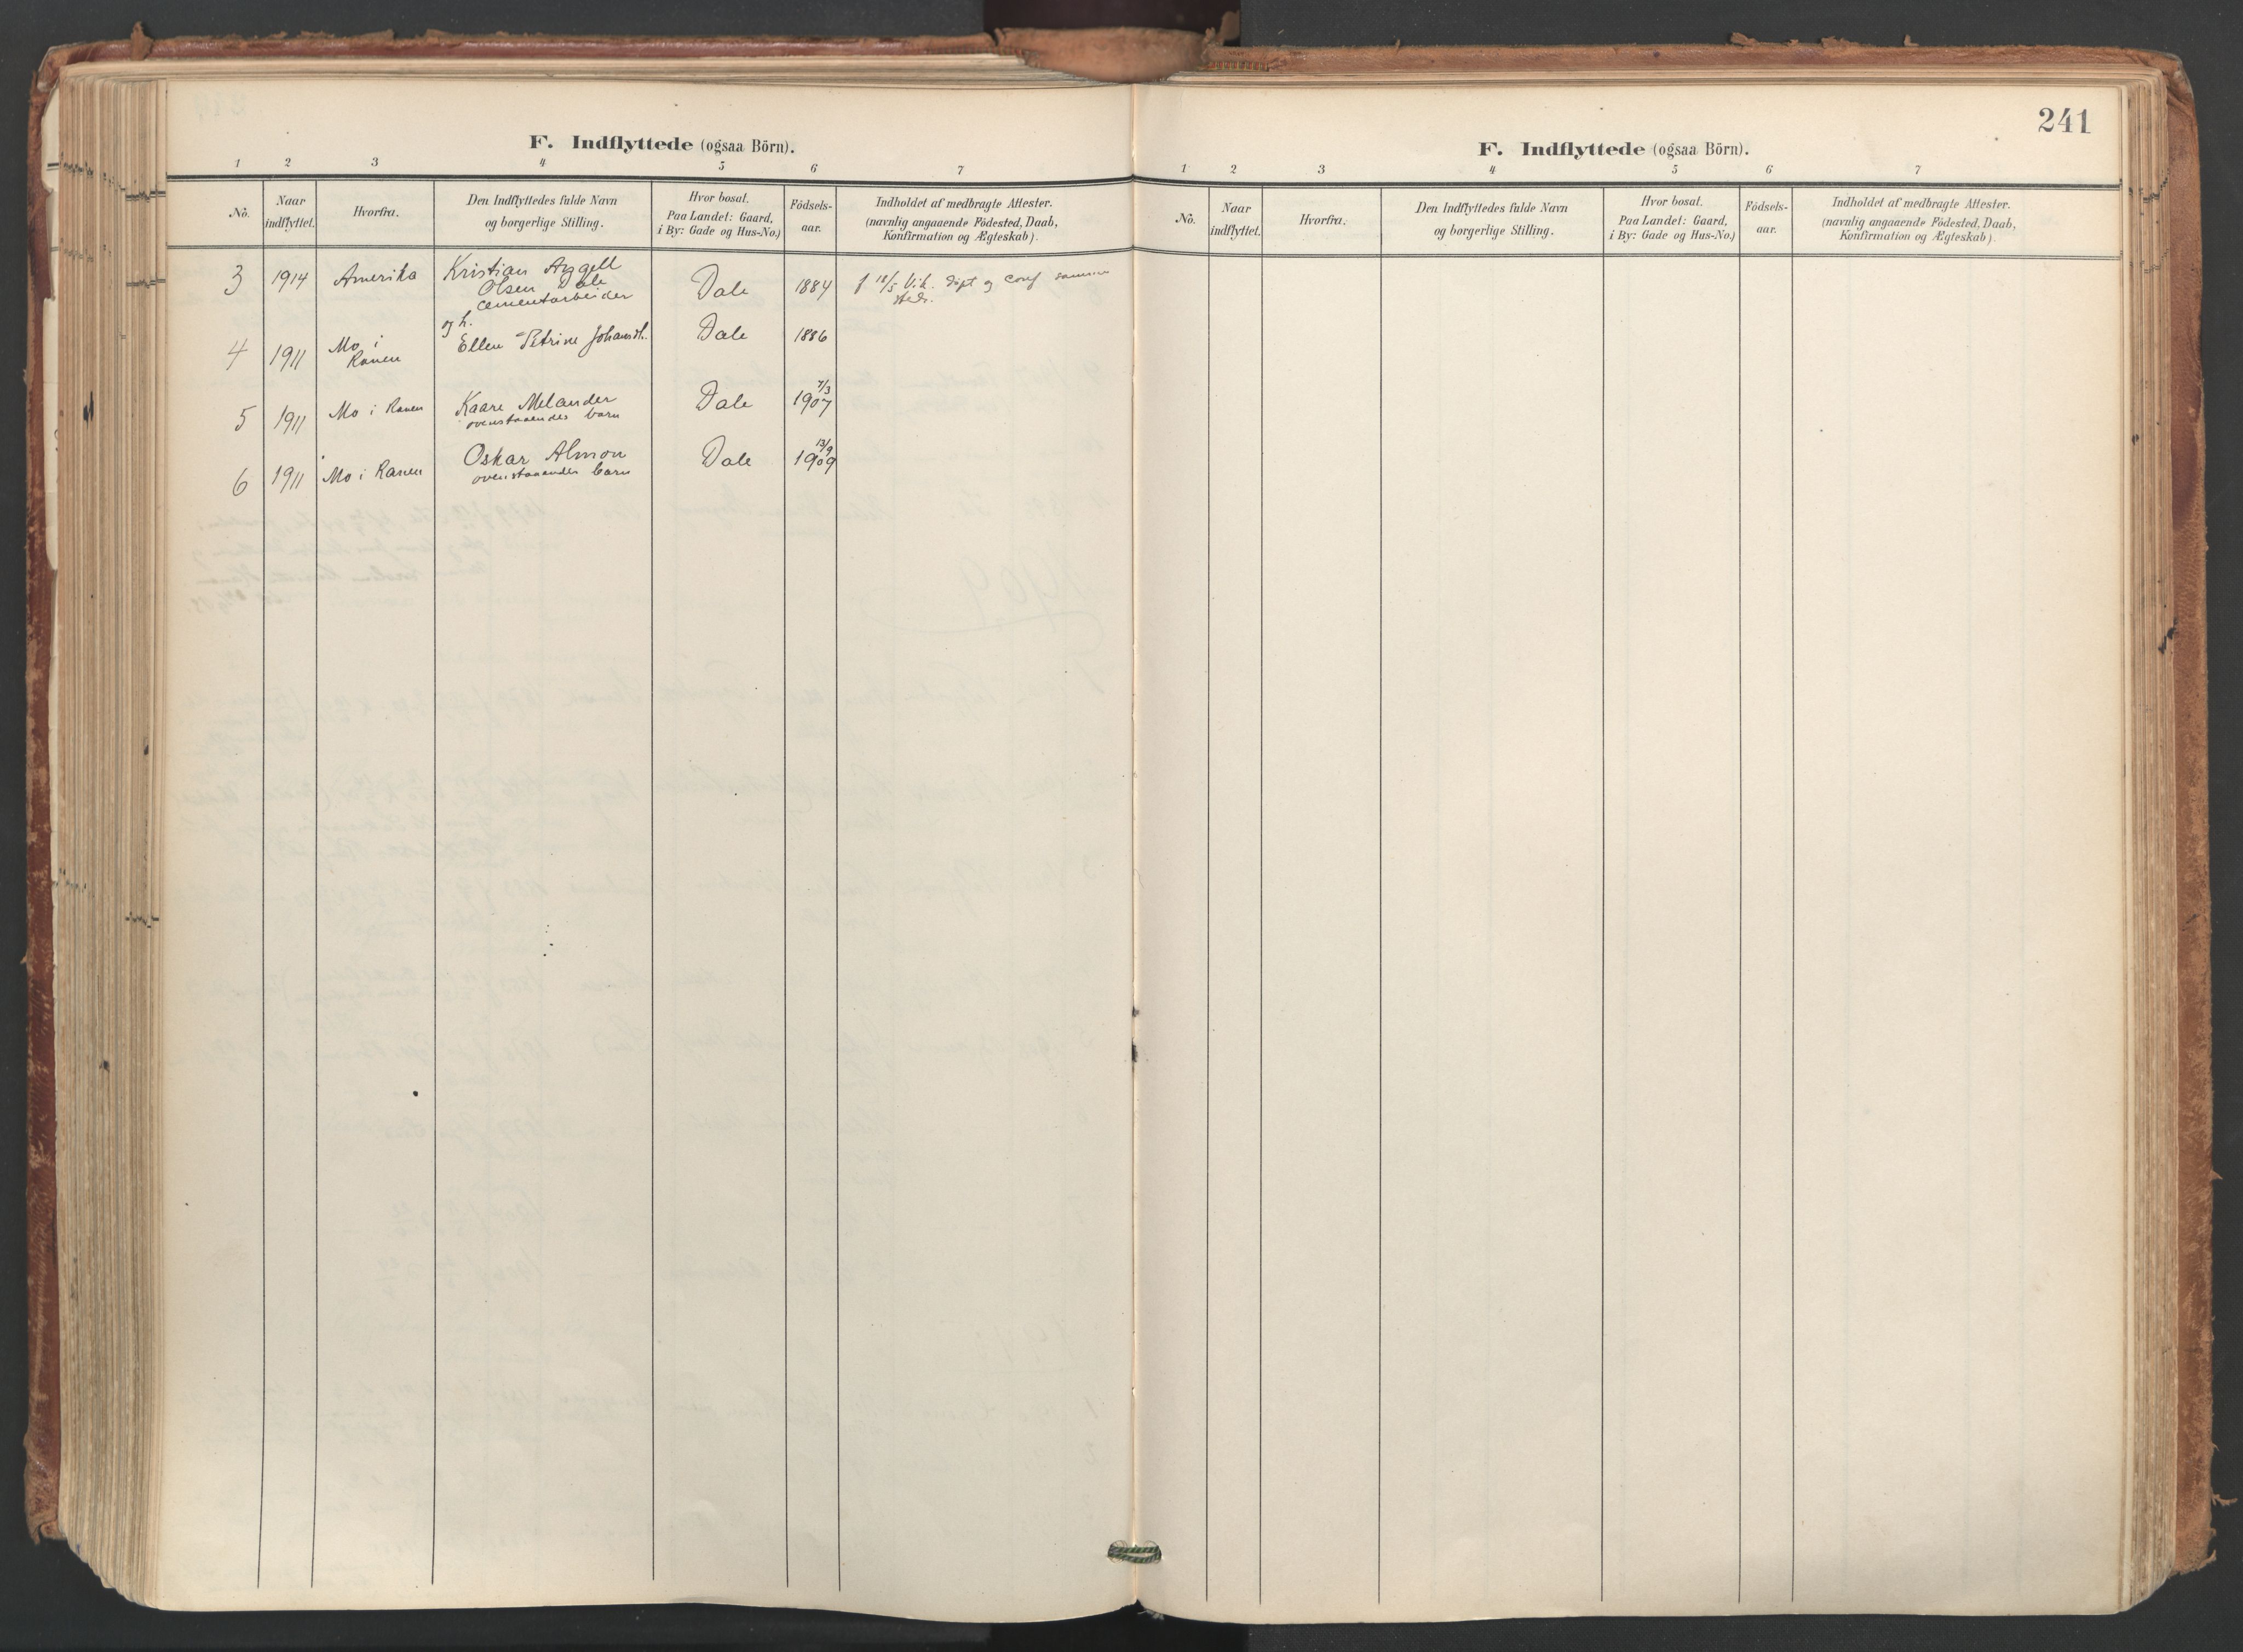 F. Indflyttede (ogsaa Börn).
1 2 3 4 5 6 7
No. Naar indflyttet. Hvorfra. Den Indflyttedes fulde Navn og borgerlige Stilling. Hvor bosat. Paa Landet: Gaard, i By: Gade og Hus-No.) Födsels-aar. Indholdet af medbragte Attester. (navnlig angaaende Födested, Daab, Konfirmation og Ægteskab).
3 1914 Amerika Kristian Angell Dale 1884 f 18/5 Vik. døpt og conf samme
Olsen Dale
steds.
cementarbeider
og h.
4 1911 Mo i Ranen Ellen Petrine Johansdt. Dale 1886
5 1911 Mo i Ranen Kaare Melander Dale 7/3 1907
ovenstaaendes barn
6 1911 Mo i Ranen Oskar Almon Dale 13/9 1909
ovenstaaendes barn
241
F. Indflyttede (ogsaa Börn).
1 2 3 4 5 6 7
No. Naar indflyttet. Hvorfra. Den Indflyttedes fulde Navn og borgerlige Stilling. Hvor bosat. Paa Landet: Gaard, i By: Gade og Hus-No.) Födsels-aar. Indholdet af medbragte Attester. (navnlig angaaende Födested, Daab, Konfirmation og Ægteskab).